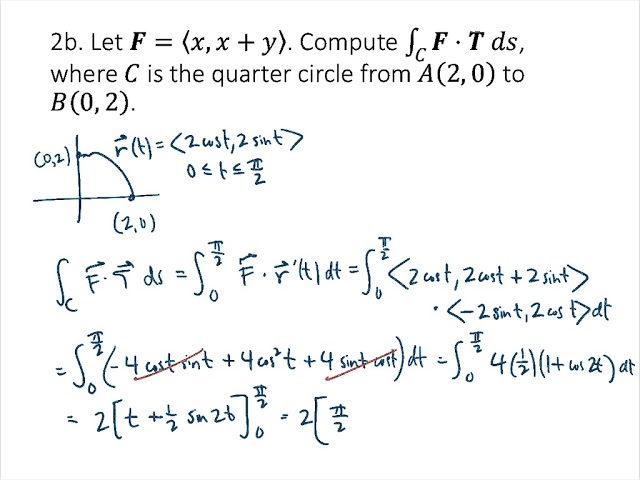 2b. Let F = ⟨x, x + y⟩. Compute ∫_C F · T ds,
where C is the quarter circle from A(2, 0) to
B(0, 2).
(0,2)
r⃗(t) = <2cost, 2sint>
0 ≤ t ≤ π/2
(2,0)
∫_C F⃗ · T⃗ ds = ∫_0^{π/2} F⃗ · r⃗'(t) dt = ∫_0^{π/2} <2cost, 2cost + 2sint>
· <-2sint, 2cost> dt
= ∫_0^{π/2} (-4 cost sint + 4cos²t + 4 sint cost) dt = ∫_0^{π/2} 4(1/2)(1 + cos 2t) dt
= 2[t + 1/2 sin 2t]_0^{π/2} = 2[π/2